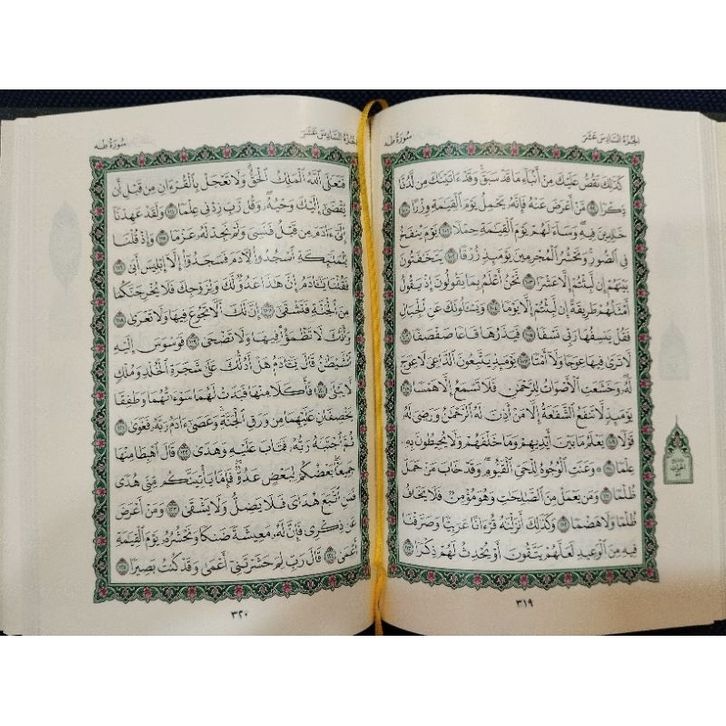 الجزء السادس عشر
سورة طه
كَذَٰلِكَ نَقُصُّ عَلَيْكَ مِنْ أَنۢبَآءِ مَا قَدْ سَبَقَ ۚ وَقَدْ ءَاتَيْنَٰكَ مِن لَّدُنَّا
ذِكْرًا ٩٩ مَّنْ أَعْرَضَ عَنْهُ فَإِنَّهُۥ يَحْمِلُ يَوْمَ ٱلْقِيَٰمَةِ وِزْرًا ١٠٠
خَٰلِدِينَ فِيهِ ۖ وَسَآءَ لَهُمْ يَوْمَ ٱلْقِيَٰمَةِ حِمْلًا ١٠١ يَوْمَ يُنفَخُ
فِى ٱلصُّورِ ۚ وَنَحْشُرُ ٱلْمُجْرِمِينَ يَوْمَئِذٍ زُرْقًا ١٠٢ يَتَخَٰفَتُونَ
بَيْنَهُمْ إِن لَّبِثْتُمْ إِلَّا عَشْرًا ١٠٣ نَّحْنُ أَعْلَمُ بِمَا يَقُولُونَ إِذْ يَقُولُ
أَمْثَلُهُمْ طَرِيقَةً إِن لَّبِثْتُمْ إِلَّا يَوْمًا ١٠٤ وَيَسْـَٔلُونَكَ عَنِ ٱلْجِبَالِ
فَقُلْ يَنسِفُهَا رَبِّى نَسْفًا ١٠٥ فَيَذَرُهَا قَاعًا صَفْصَفًا ١٠٦
لَّا تَرَىٰ فِيهَا عِوَجًا وَلَآ أَمْتًا ١٠٧ يَوْمَئِذٍ يَتَّبِعُونَ ٱلدَّاعِىَ لَا عِوَجَ
لَهُۥ ۖ وَخَشَعَتِ ٱلْأَصْوَاتُ لِلرَّحْمَٰنِ فَلَا تَسْمَعُ إِلَّا هَمْسًا ١٠٨
يَوْمَئِذٍ لَّا تَنفَعُ ٱلشَّفَٰعَةُ إِلَّا مَنْ أَذِنَ لَهُ ٱلرَّحْمَٰنُ وَرَضِىَ لَهُۥ
قَوْلًا ١٠٩ يَعْلَمُ مَا بَيْنَ أَيْدِيهِمْ وَمَا خَلْفَهُمْ وَلَا يُحِيطُونَ بِهِۦ
عِلْمًا ١١٠ ۞ وَعَنَتِ ٱلْوُجُوهُ لِلْحَىِّ ٱلْقَيُّومِ ۖ وَقَدْ خَابَ مَنْ حَمَلَ
ظُلْمًا ١١١ وَمَن يَعْمَلْ مِنَ ٱلصَّٰلِحَٰتِ وَهُوَ مُؤْمِنٌ فَلَا يَخَافُ
ظُلْمًا وَلَا هَضْمًا ١١٢ وَكَذَٰلِكَ أَنزَلْنَٰهُ قُرْءَانًا عَرَبِيًّا وَصَرَّفْنَا
فِيهِ مِنَ ٱلْوَعِيدِ لَعَلَّهُمْ يَتَّقُونَ أَوْ يُحْدِثُ لَهُمْ ذِكْرًا ١١٣
٣١٩
الجزء السادس عشر
سورة طه
فَتَعَٰلَى ٱللَّهُ ٱلْمَلِكُ ٱلْحَقُّ ۗ وَلَا تَعْجَلْ بِٱلْقُرْءَانِ مِن قَبْلِ أَن
يُقْضَىٰٓ إِلَيْكَ وَحْيُهُۥ ۖ وَقُل رَّبِّ زِدْنِى عِلْمًا ١١٤ وَلَقَدْ عَهِدْنَآ
إِلَىٰٓ ءَادَمَ مِن قَبْلُ فَنَسِىَ وَلَمْ نَجِدْ لَهُۥ عَزْمًا ١١٥ وَإِذْ قُلْنَا
لِلْمَلَٰٓئِكَةِ ٱسْجُدُوا۟ لِءَادَمَ فَسَجَدُوٓا۟ إِلَّآ إِبْلِيسَ أَبَىٰ ١١٦
فَقُلْنَا يَٰٓـَٔادَمُ إِنَّ هَٰذَا عَدُوٌّ لَّكَ وَلِزَوْجِكَ فَلَا يُخْرِجَنَّكُمَا
مِنَ ٱلْجَنَّةِ فَتَشْقَىٰٓ ١١٧ إِنَّ لَكَ أَلَّا تَجُوعَ فِيهَا وَلَا تَعْرَىٰ ١١٨
وَأَنَّكَ لَا تَظْمَؤُا۟ فِيهَا وَلَا تَضْحَىٰ ١١٩ فَوَسْوَسَ إِلَيْهِ
ٱلشَّيْطَٰنُ قَالَ يَٰٓـَٔادَمُ هَلْ أَدُلُّكَ عَلَىٰ شَجَرَةِ ٱلْخُلْدِ وَمُلْكٍ
لَّا يَبْلَىٰ ١٢٠ فَأَكَلَا مِنْهَا فَبَدَتْ لَهُمَا سَوْءَٰتُهُمَا وَطَفِقَا
يَخْصِفَانِ عَلَيْهِمَا مِن وَرَقِ ٱلْجَنَّةِ ۚ وَعَصَىٰٓ ءَادَمُ رَبَّهُۥ فَغَوَىٰ ١٢١
ثُمَّ ٱجْتَبَٰهُ رَبُّهُۥ فَتَابَ عَلَيْهِ وَهَدَىٰ ١٢٢ قَالَ ٱهْبِطَا مِنْهَا
جَمِيعًۢا ۖ بَعْضُكُمْ لِبَعْضٍ عَدُوٌّ ۖ فَإِمَّا يَأْتِيَنَّكُم مِّنِّى هُدًى
فَمَنِ ٱتَّبَعَ هُدَاىَ فَلَا يَضِلُّ وَلَا يَشْقَىٰ ١٢٣ وَمَنْ أَعْرَضَ
عَن ذِكْرِى فَإِنَّ لَهُۥ مَعِيشَةً ضَنكًا وَنَحْشُرُهُۥ يَوْمَ ٱلْقِيَٰمَةِ
أَعْمَىٰ ١٢٤ قَالَ رَبِّ لِمَ حَشَرْتَنِىٓ أَعْمَىٰ وَقَدْ كُنتُ بَصِيرًا ١٢٥
٣٢٠